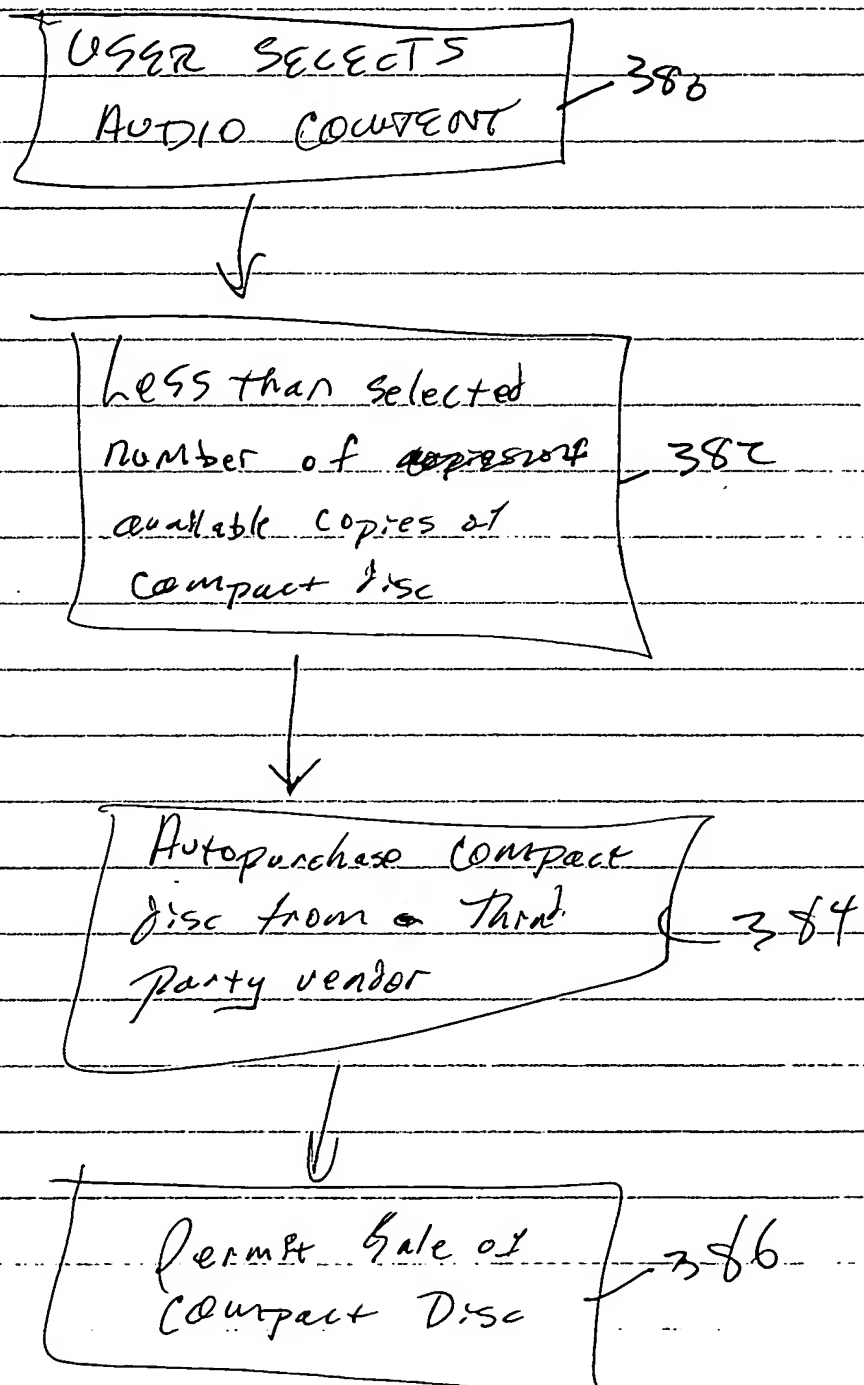 USER SELECTS
AUDIO CONTENT
380
Less than selected
number of
available copies of
compact disc
382
Autopurchase compact
disc from a Third
Party vendor
384
Permit Sale of
Compact Disc
386